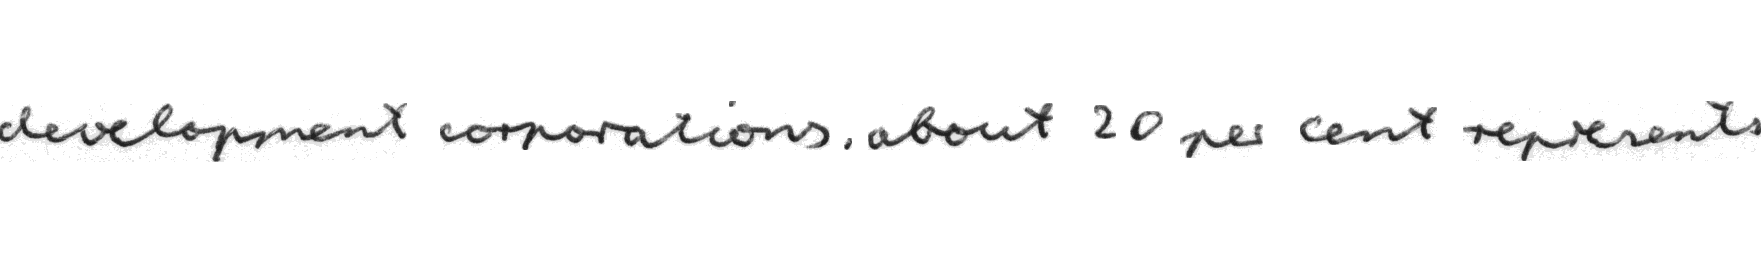 development corporations, about 20 per cent represents